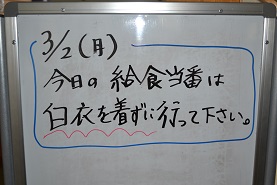 3/2(月)
今日の給食当番は
白衣を着ずに行って下さい。